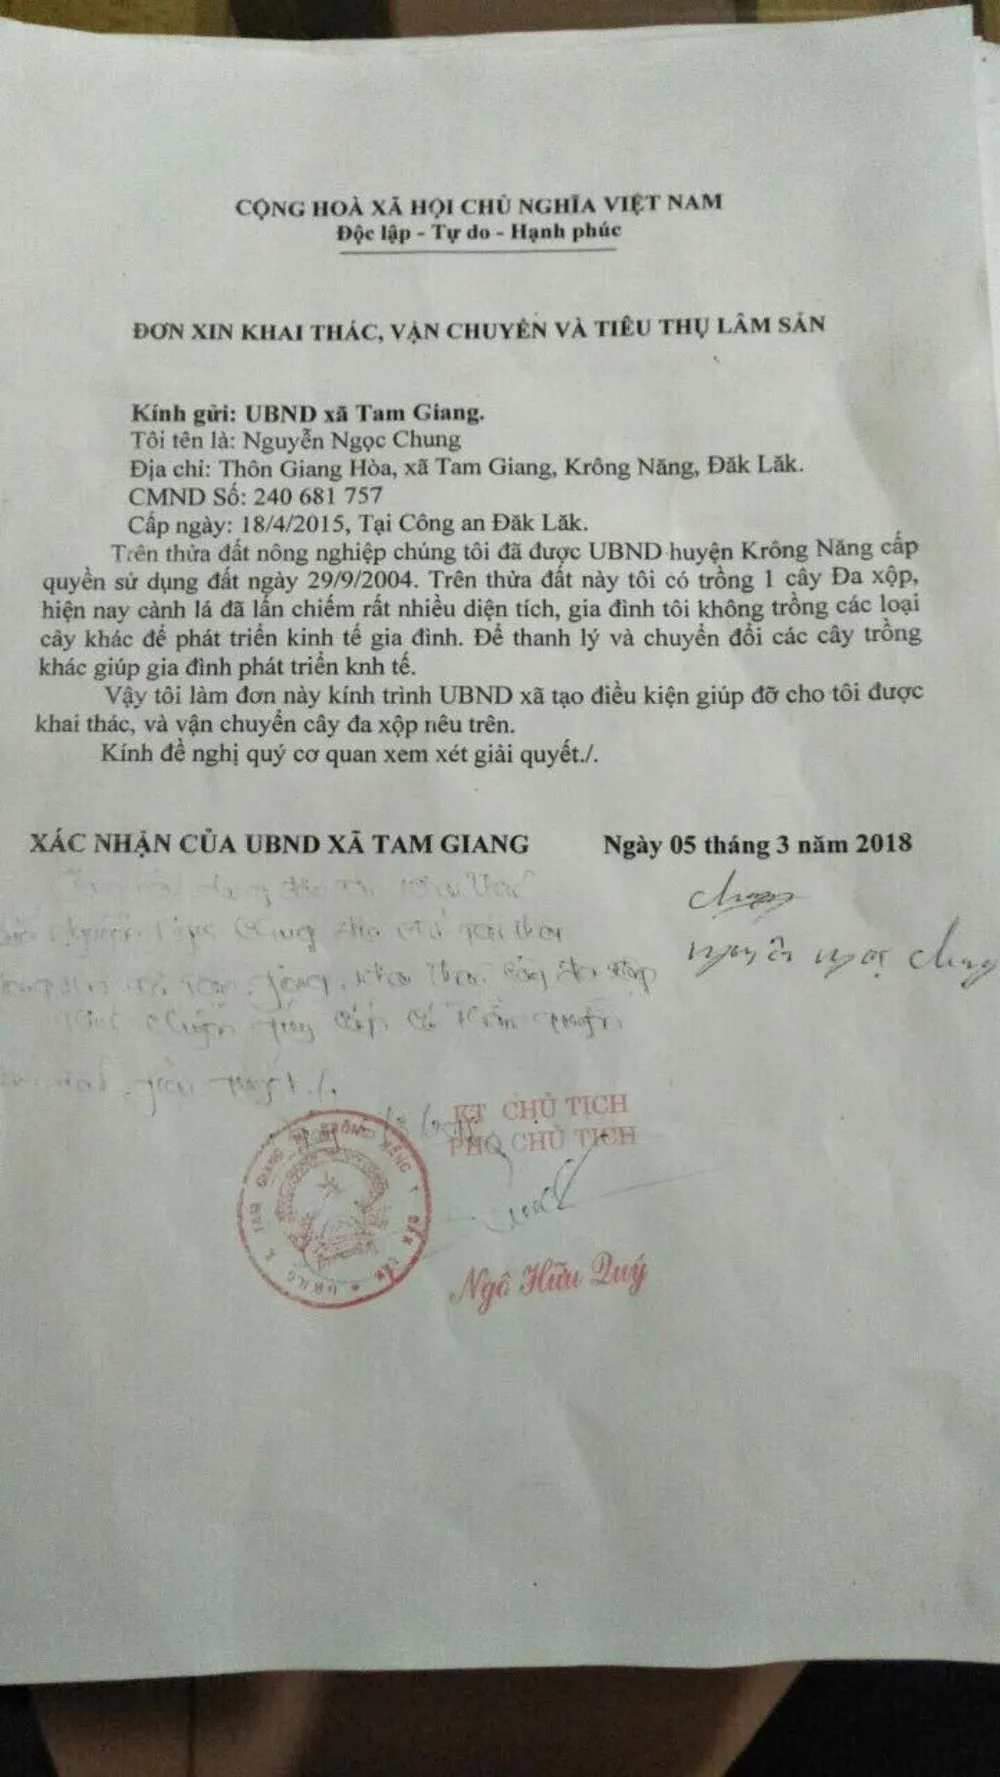 CỘNG HOÀ XÃ HỘI CHỦ NGHĨA VIỆT NAM
Độc lập - Tự do - Hạnh phúc
ĐƠN XIN KHAI THÁC, VẬN CHUYỂN VÀ TIÊU THỤ LÂM SẢN
Kính gửi: UBND xã Tam Giang.
Tôi tên là: Nguyễn Ngọc Chung
Địa chỉ: Thôn Giang Hòa, xã Tam Giang, Krông Năng, Đăk Lăk.
CMND Số: 240 681 757
Cấp ngày: 18/4/2015, Tại Công an Đăk Lăk.
Trên thửa đất nông nghiệp chúng tôi đã được UBND huyện Krông Năng cấp
quyền sử dụng đất ngày 29/9/2004. Trên thửa đất này tôi có trồng 1 cây Đa xộp,
hiện nay cành lá đã lấn chiếm rất nhiều diện tích, gia đình tôi không trồng các loại
cây khác để phát triển kinh tế gia đình. Để thanh lý và chuyển đổi các cây trồng
khác giúp gia đình phát triển knh tế.
Vậy tôi làm đơn này kính trình UBND xã tạo điều kiện giúp đỡ cho tôi được
khai thác, và vận chuyển cây đa xộp nêu trên.
Kính đề nghị quý cơ quan xem xét giải quyết./.
XÁC NHẬN CỦA UBND XÃ TAM GIANG
Ngày 05 tháng 3 năm 2018
Chung
Nguyễn Ngọc Chung
KT CHỦ TỊCH
PHÓ CHỦ TỊCH
Ngô Hữu Quý